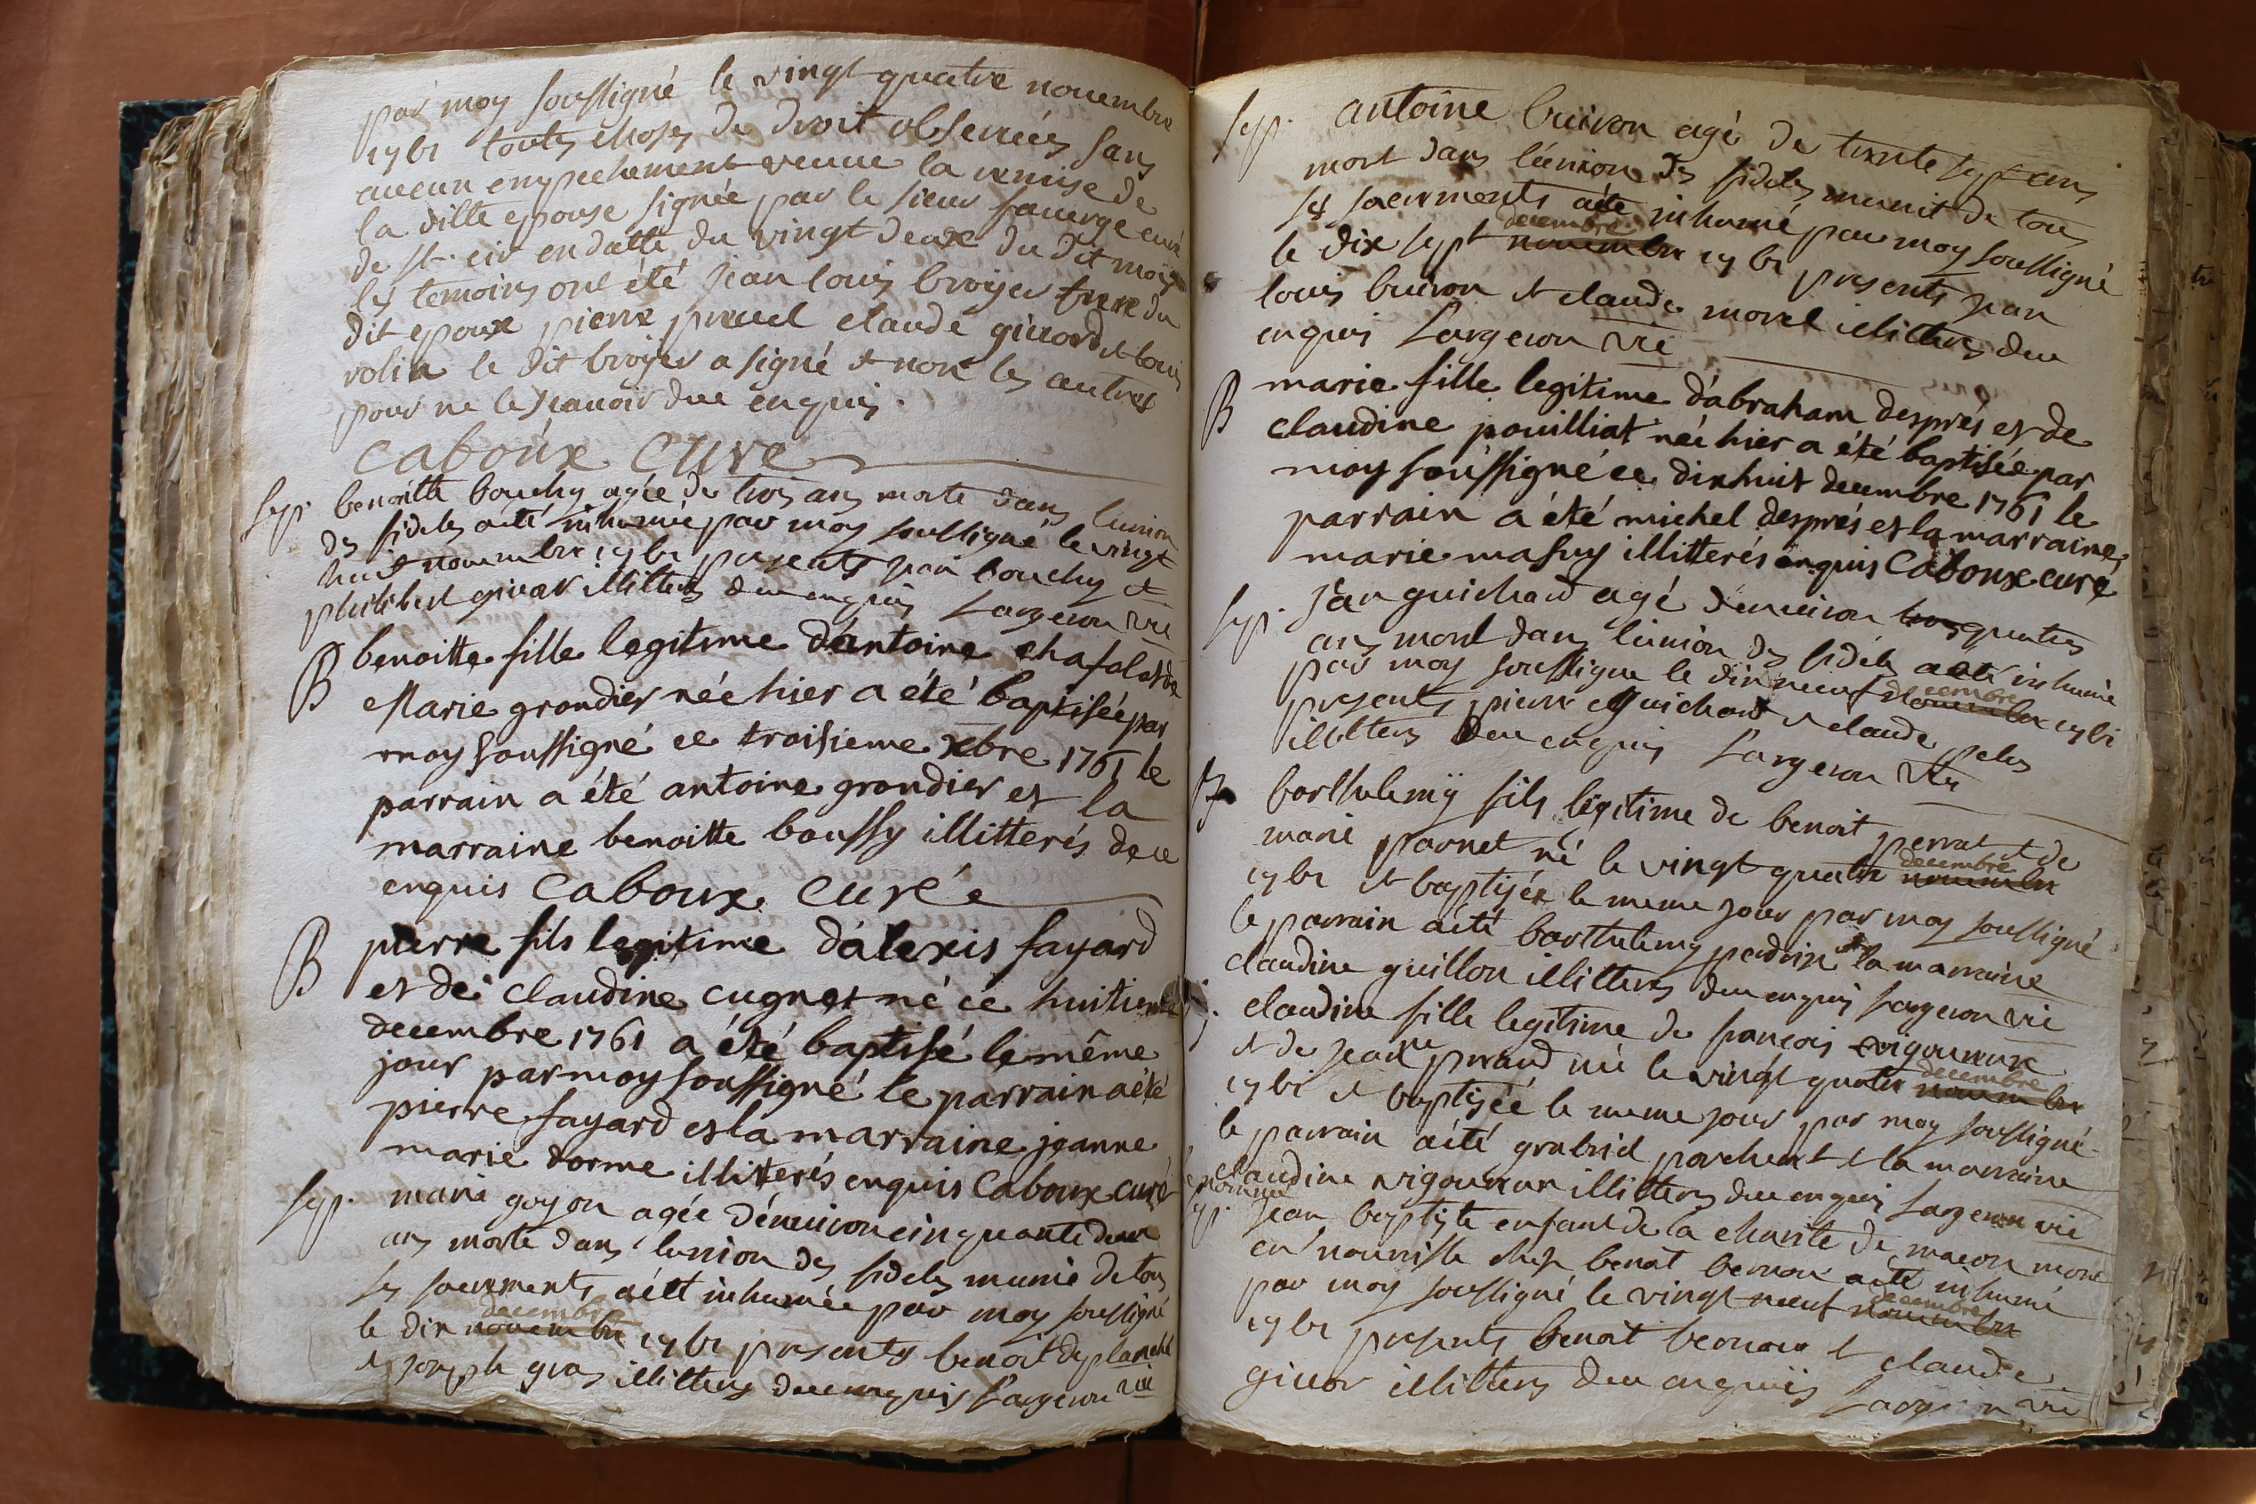 par moy soussigné le vingt quatre novembre
1761 toutes choses de droit observées sans
aucun empechement venue la remise de
la ditte epouse signée par le sieur fauerge curé
de st. cir en datte du vingt deux du dit mois
les temoins ont été jean louis broyer frere du
dit epoux pierre claude giuord et louis
rolin le dit broyer a signé et non les autres
pour ne le scauoir due enquis.
caboux curé
sep. benoitte bouchy agée de trois ans morte dans l'union
des fideles a eté inhumée par moy soussigné le vingt
huit novembre 1761 presents jean bouchy et
philibert giuor illitterés due enquis Largeron vic
B benoitte fille legitime d'antoine chafalot et de
Marie grandier née hier a été baptisée par
moy soussigné ce troisieme xbre 1761 le
parrain a été antoine grandier et la
marraine benoitte boussy illitterés de ce
enquis caboux curé
B pierre fils legitime d'alexis fayard
et de claudine cugnet né ce huitieme
decembre 1761 a été baptisé le même
jour par moy soussigné le parrain a été
pierre fayard et la marraine jeanne
marie dorme illitterés enquis Caboux curé
sep. marie goyon agée d'enuiron cinquante deux
ans morte dans l'union des fideles munie de tous
ses sacrements a été inhumée par moy soussigné
decembre
le dix novembre 1761 presents benoit deplanche
et joseph gras illitterés due enquis Largeron vic
sep. antoine buiron agé de trente sept ans
mort dans l'union des fideles munit de tous
ses sacrements a été inhumé par moy soussigné
decembre
le dix sept novembre 1761 presents jean
louis buiron et claude morel illitterés due
enquis Largeron vic
B marie fille legitime d'abraham després et de
claudine pouilliat née hier a été baptisée par
moy soussigné ce dixhuit decembre 1761 le
parrain a été michel després et la marraine
marie masuy illitterés enquis Caboux curé
sep. jean guichard agé denuiron trois quatre
ans mort dans l'union des fideles a eté inhumé
par moy soussigné le dixneuf novembre 1761
decembre
presents pierre guichard et claude
illitterés due enquis Largeron vic
B barthelemÿ fils legitime de benoit perrat et de
marie parnet né le vingt quatre novembre
decembre
1761 et baptisér le meme jour par moy soussigné
le parrain a eté barthelemy perdrix et la marraine
claudine guillon illitterés due enquis Largeron vic
claudine fille legitime de francois vigoureux
et de jeanne née le vingt quatre novembre
decembre
1761 et baptisée le meme jour par moy soussigné
le parrain a eté grabriel et la marraine
claudine vigoureux illitterés due enquis Largeron vic
sep. jean baptiste enfant de la charité de macon mort
en nourisse chez benoit a eté inhumé
decembre
par moy soussigné le vingt neuf novembre
1761 presents benoit et claude
giuor illitterés due enquis Largeron vic